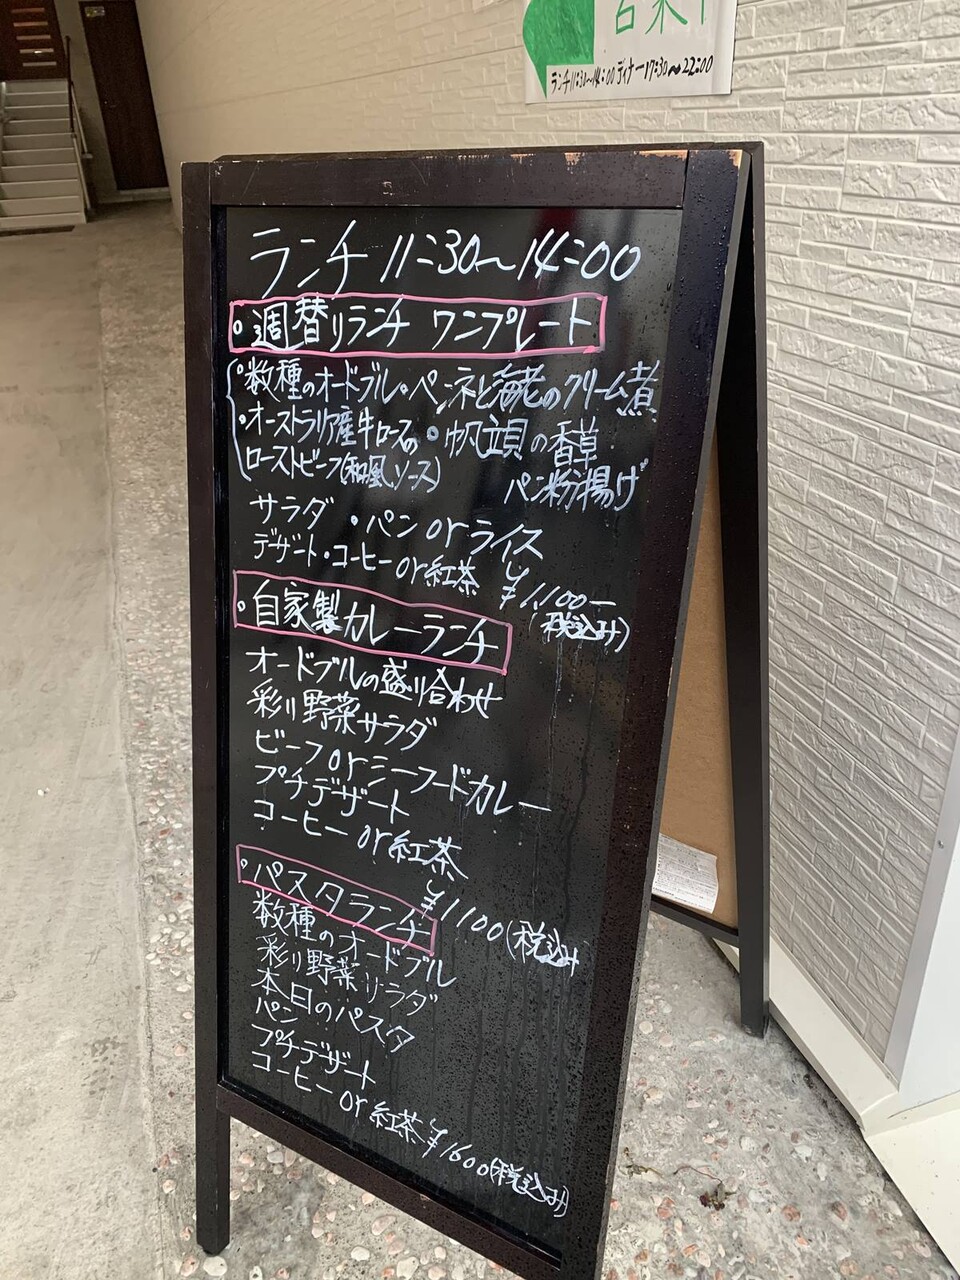 ランチ11:30〜14:00 ディナー17:30〜22:00
ランチ 11:30〜14:00
・週替りランチ ワンプレート
・数種のオードブル・ペンネと海老のクリーム煮
・オーストラリア産牛ロースの
ローストビーフ(和風ソース)
・帆立貝の香草
パン粉揚げ
サラダ ・パン or ライス
デザート・コーヒー or 紅茶
¥1,100ー
(税込み)
・自家製カレーランチ
オードブルの盛り合わせ
彩り野菜サラダ
ビーフ or シーフードカレー
プチデザート
コーヒー or 紅茶
¥1100(税込み
・パスタランチ
数種のオードブル
彩り野菜サラダ
本日のパスタ
パン
プチデザート
コーヒー or 紅茶 ¥1600(税込み)